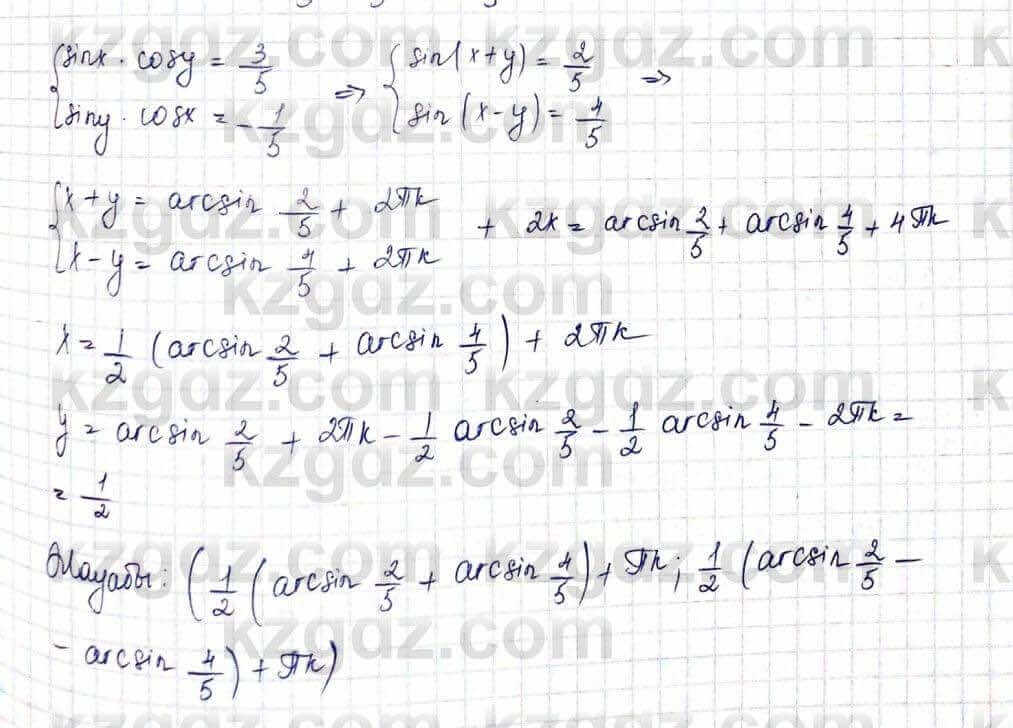 { sinx · cosy = 3/5 ; siny · cosx = -1/5 => { sin(x+y) = 2/5 ; sin(x-y) = 4/5 =>
{ x+y = arcsin 2/5 + 2πk ; x-y = arcsin 4/5 + 2πk + 2x = arcsin 2/5 + arcsin 4/5 + 4πk
x = 1/2 (arcsin 2/5 + arcsin 4/5) + 2πk
y = arcsin 2/5 + 2πk - 1/2 arcsin 2/5 - 1/2 arcsin 4/5 - 2πk =
= 1/2
Жауабы: (1/2 (arcsin 2/5 + arcsin 4/5) + πk ; 1/2 (arcsin 2/5 -
- arcsin 4/5) + πk)
kzgdz.com